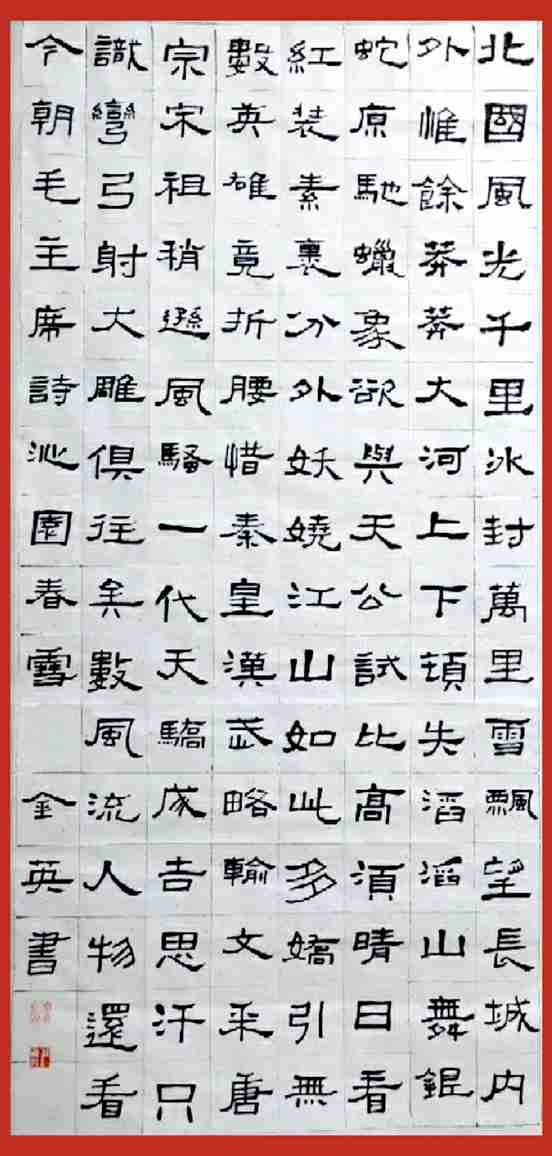 北國風光千里冰封萬里雪飄望長城內
外惟餘莽莽大河上下頓失滔滔山舞銀
蛇原馳蠟象欲與天公試比高須晴日看
紅裝素裹分外妖嬈江山如此多嬌引無
數英雄竟折腰惜秦皇漢武略輸文采唐
宗宋祖稍遜風騷一代天驕成吉思汗只
識彎弓射大雕俱往矣數風流人物還看
今朝毛主席詩沁園春雪 金英書